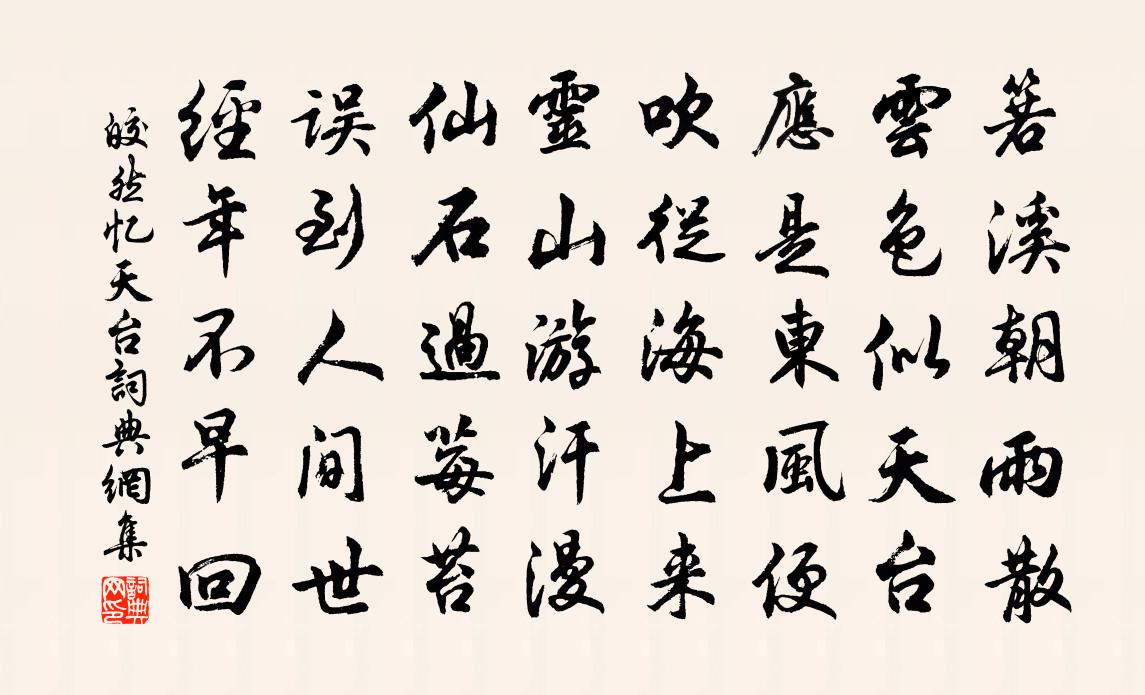 箬溪朝雨散
雲色似天台
應是東風便
吹從海上来
靈山游汗漫
仙石過莓苔
误到人间世
經年不早回
皎然忆天台詞典網集
詞典网印